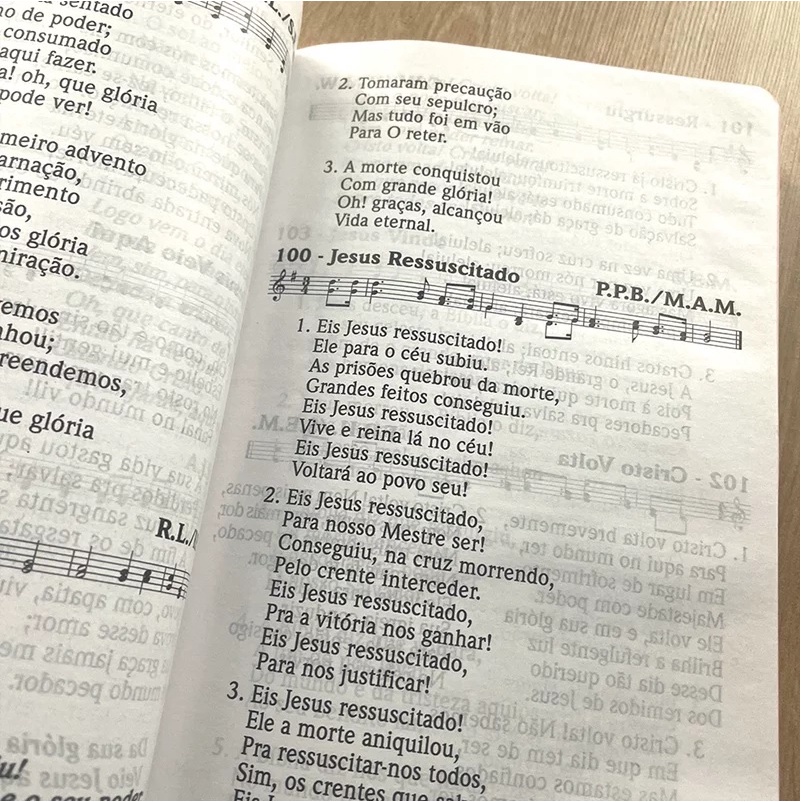 sentado
no de poder;
consumado
aqui fazer.
a! oh, que glória
pode ver!
meiro advento
arnação,
rimento
são,
os glória
miração.
vemos
nhou;
preendemos,
ue glória
R.L./
2. Tomaram precaução
Com seu sepulcro;
Mas tudo foi em vão
Para O reter.
3. A morte conquistou
Com grande glória!
Oh! graças, alcançou
Vida eternal.
100 - Jesus Ressuscitado
P.P.B./M.A.M.
1. Eis Jesus ressuscitado!
Ele para o céu subiu.
As prisões quebrou da morte,
Grandes feitos conseguiu.
Eis Jesus ressuscitado!
Vive e reina lá no céu!
Eis Jesus ressuscitado!
Voltará ao povo seu!
2. Eis Jesus ressuscitado,
Para nosso Mestre ser!
Conseguiu, na cruz morrendo,
Pelo crente interceder.
Eis Jesus ressuscitado,
Pra a vitória nos ganhar!
Eis Jesus ressuscitado,
Para nos justificar!
3. Eis Jesus ressuscitado!
Ele a morte aniquilou,
Pra ressuscitar-nos todos,
Sim, os crentes que
Eis Jesus